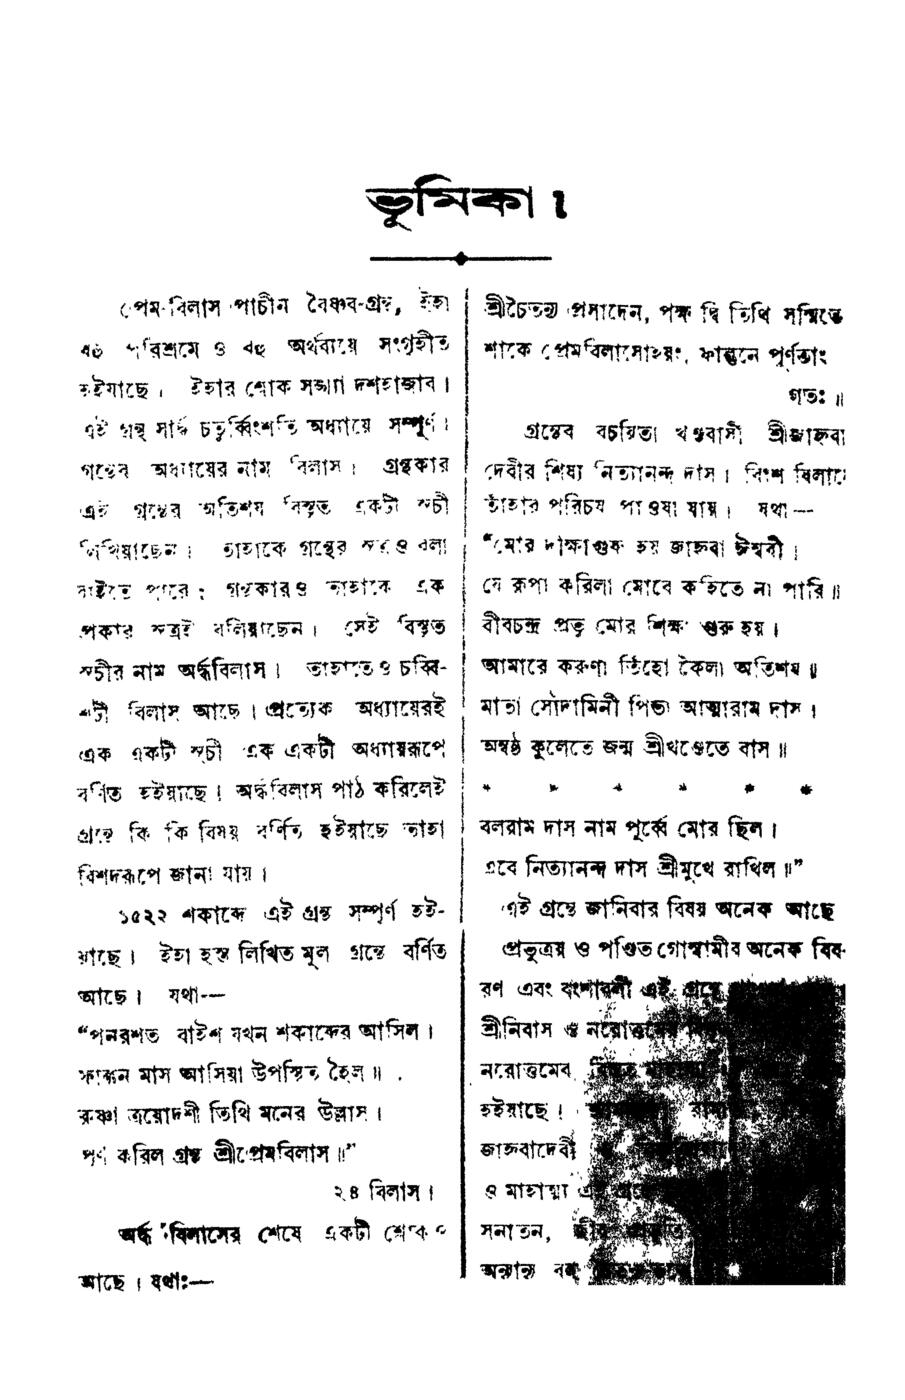 ভূমিকা।
প্রেম-বিলাস প্রাচীন বৈষ্ণব-গ্রন্থ, ইহা
বহু পরিশ্রমে ও বহু অর্থব্যয়ে সংগৃহীত
হইয়াছে। ইহার শ্লোক সঙ্খ্যা দশহাজার।
এই গ্রন্থ সার্দ্ধ চতুর্ব্বিংশতি অধ্যায়ে সম্পূর্ণ।
গ্রন্থের অধ্যায়ের নাম বিলাস। গ্রন্থকার
এই গ্রন্থের অতিশয় বিস্তৃত একটী সূচী
লিখিয়াছেন। তাহাকে গ্রন্থের সূত্রও বলা
যাইতে পারে; গ্রন্থকারও তাহাকে এক
প্রকার সূত্রই বলিয়াছেন। সেই বিস্তৃত
সূচীর নাম অর্দ্ধবিলাস। তাহাতেও চব্বি-
শটী বিলাস আছে। প্রত্যেক অধ্যায়েরই
এক একটী সূচী এক একটী অধ্যায়রূপে
বর্ণিত হইয়াছে। অর্দ্ধবিলাস পাঠ করিলেই
গ্রন্থে কি কি বিষয় বর্ণিত হইয়াছে তাহা
বিশদরূপে জানা যায়।
১৫২২ শকাব্দে এই গ্রন্থ সম্পূর্ণ হই-
য়াছে। ইহা হস্ত লিখিত মূল গ্রন্থে বর্ণিত
আছে। যথা—
“পনরশত বাইশ যখন শকাব্দের আসিল।
ফাল্গুন মাস আসিয়া উপস্থিত হৈল॥
কৃষ্ণা ত্রয়োদশী তিথি মনের উল্লাস।
পূর্ণ করিল গ্রন্থ শ্রীপ্রেমবিলাস॥”
২৪ বিলাস।
অর্দ্ধ বিলাসের শেষে একটী শ্লোকও
আছে। যথাঃ—
শ্রীচৈতন্য প্রসাদেন, পক্ষ দ্বি তিথি সম্মিতে
শাকে প্রেমবিলাসোহয়ং, ফাল্গুনে পূর্ণতাং
গতঃ॥
গ্রন্থের রচয়িতা খণ্ডবাসী শ্রীজাহ্নবা
দেবীর শিষ্য নিত্যানন্দ দাস। বিংশ বিলাসে
তাঁহার পরিচয় পাওয়া যায়। যথা—
“মোর দীক্ষাগুরু হয় জাহ্নবা ঈশ্বরী।
যে কৃপা করিলা মোরে কহিতে না পারি॥
বীরচন্দ্র প্রভু মোর শিক্ষা গুরু হয়।
আমারে করুণা তিঁহো কৈলা অতিশয়॥
মাতা সৌদামিনী পিতা আত্মারাম দাস।
অম্বষ্ঠ কুলেতে জন্ম শ্রীখণ্ডেতে বাস॥
* * * * * *
বলরাম দাস নাম পূর্ব্বে মোর ছিল।
এবে নিত্যানন্দ দাস শ্রীমুখে রাখিল॥”
এই গ্রন্থে জানিবার বিষয় অনেক আছে
প্রভুত্রয় ও পণ্ডিত গোস্বামীর অনেক বিব-
রণ এবং বংশাবলী এই গ্রন্থে
শ্রীনিবাস ও নরোত্তমের
নরোত্তমের বিস্তৃত
হইয়াছে।
জাহ্নবাদেবী
ও মাহাত্ম্য এই গ্রন্থে
সনাতন, জীব প্রভৃতি
অন্যান্য